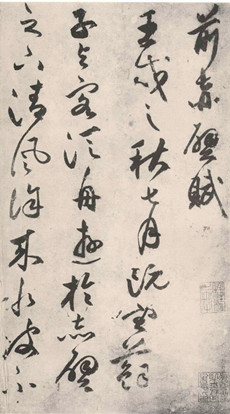 前赤壁赋
壬戌之秋七月既望苏
子与客泛舟遊于赤壁
之下清风徐来水波不